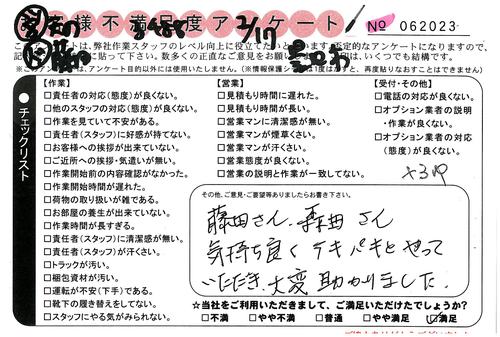 様不満足度アンケート
2/17
No 062023
このアンケートは、弊社作業スタッフのレベル向上に役立てたいと
【作業】
□責任者の対応(態度)が良くない。
□他のスタッフの対応(態度)が良くない。
□作業を見ていて不安がある。
□責任者(スタッフ)に好感が持てない。
□お客様への挨拶が出来ていない。
□ご近所への挨拶・気遣いが無い。
□作業開始前の内容確認がなかった。
□作業開始時間が遅れた。
□荷物の取り扱いが雑である。
□お部屋の養生が出来ていない。
□作業時間が長すぎる。
□責任者(スタッフ)に清潔感が無い。
□責任者(スタッフ)が汗くさい。
□トラックが汚い。
□梱包資材が汚い。
□運転が不安(下手)である。
□靴下の履き替えをしてない。
□スタッフにやる気がみられない。
【営業】
□見積もり時間に遅れた。
□見積もり時間が長い。
□営業マンに清潔感が無い。
□営業マンが煙草くさい。
□営業マンが汗くさい。
□営業態度が良くない。
□営業の説明と作業が一致してない。
【受付・その他】
□電話の対応が良くない。
□オプション業者の説明
・作業が良くない。
□オプション業者の対応
(態度)が良くない。
チェックリスト
その他、ご意見・ご要望等ありましたらお書き下さい。
藤田さん、森田さん
気持ち良くテキパキとやって
いただき、大変助かりました。
☆当社をご利用いただきまして、ご満足いただけたでしょうか?
□不満 □やや不満 □普通 □やや満足 ☑満足